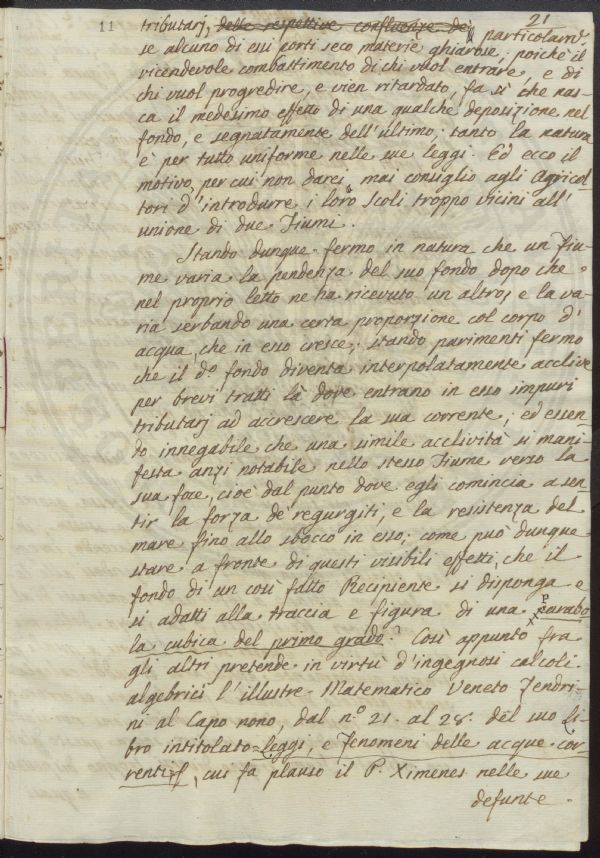 11 21
tributarj, delle respettive confluenze dei particolarm.e
se alcuno di essi porti seco materie ghiarose; poichè il
vicendevole combattimento di chi vuol entrare, e di
chi vuol progredire, e vien ritardato, fa sì che nas-
ca il medesimo effetto di una qualche deposizione nel
fondo, e segnatamente dell'ultimo; tanto la natura
è per tutto uniforme nelle sue leggi. Ed ecco il
motivo, per cui non darei mai consiglio agli Agricol-
tori d'introdurre i loro scoli troppo vicini all'
unione di due Fiumi.
Stando dunque fermo in natura che un Fiu-
me varia la pendenza del suo fondo dopo che
nel proprio letto ne ha ricevuto un altro, e la va-
ria serbando una certa proporzione col corpo d'
acqua, che in esso cresce; stando parimenti fermo
che il d.o fondo diventa interpolatamente acclive
per brevi tratti là dove entrano in esso impuri
tributarj ad accrescere la sua corrente; ed essen-
do innegabile che una simile acclività si mani-
festa anzi notabile nello stesso Fiume verso la
sua foce, cioè dal punto dove egli comincia a sen-
tir la forza de' regurgiti, e la resistenza del
mare fino allo sbocco in esso; come può dunque
stare a fronte di questi visibili effetti, che il
fondo di un così fatto Recipiente si disponga e
si adatti alla traccia e figura di una parabo
la cubica del primo grado? Così appunto fra
gli altri pretende in virtù d'ingegnosi calcoli
algebrici l'illustre Matematico Veneto Zendri-
ni al Capo nono, dal n.o 21. al 28. del suo Li-
bro intitolato = Leggi, e Fenomeni delle acque cor-
renti, cui fa plauso il P. Ximenes nelle sue
defunte